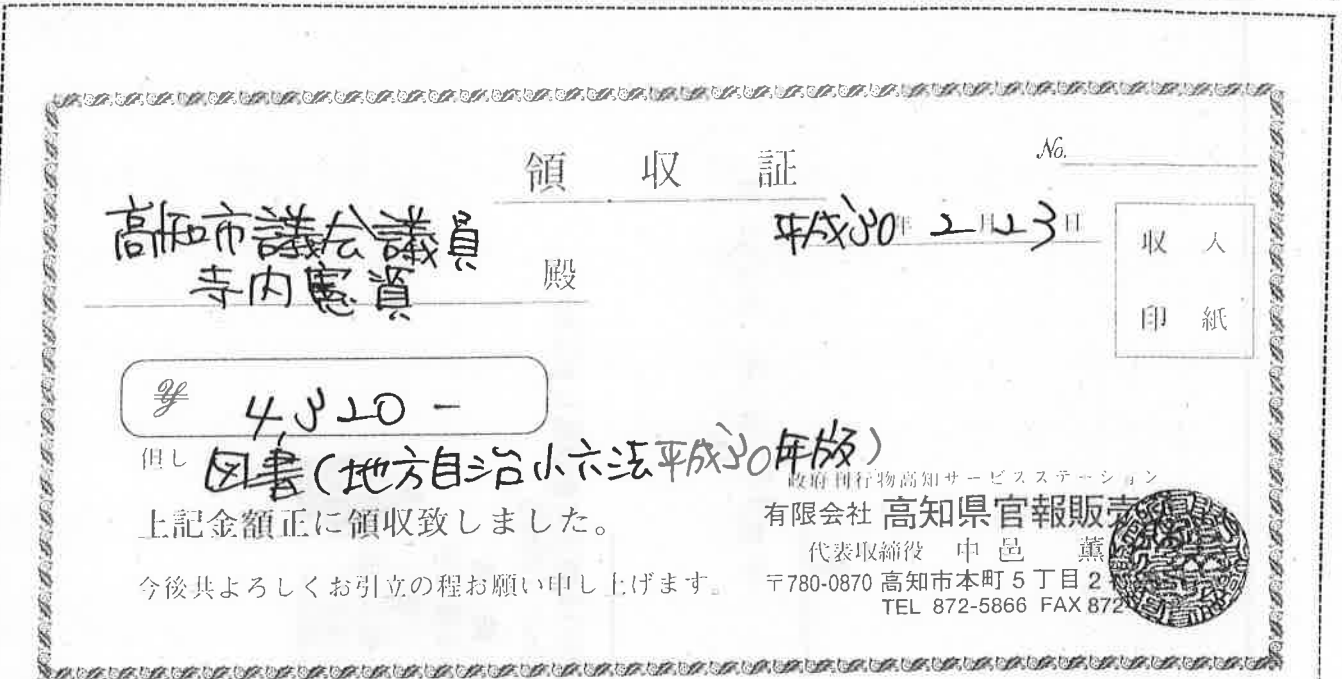 領収証
No.
平成30年2月23日
高知市議会議員
寺内憲資 殿
収入
印紙
¥ 4,320-
但し 図書(地方自治小六法平成30年版)
上記金額正に領収致しました。
今後共よろしくお引立の程お願い申し上げます。
政府刊行物高知サービスステーション
有限会社 高知県官報販売
代表取締役 中邑 薫
〒780-0870 高知市本町5丁目2
TEL 872-5866 FAX 872